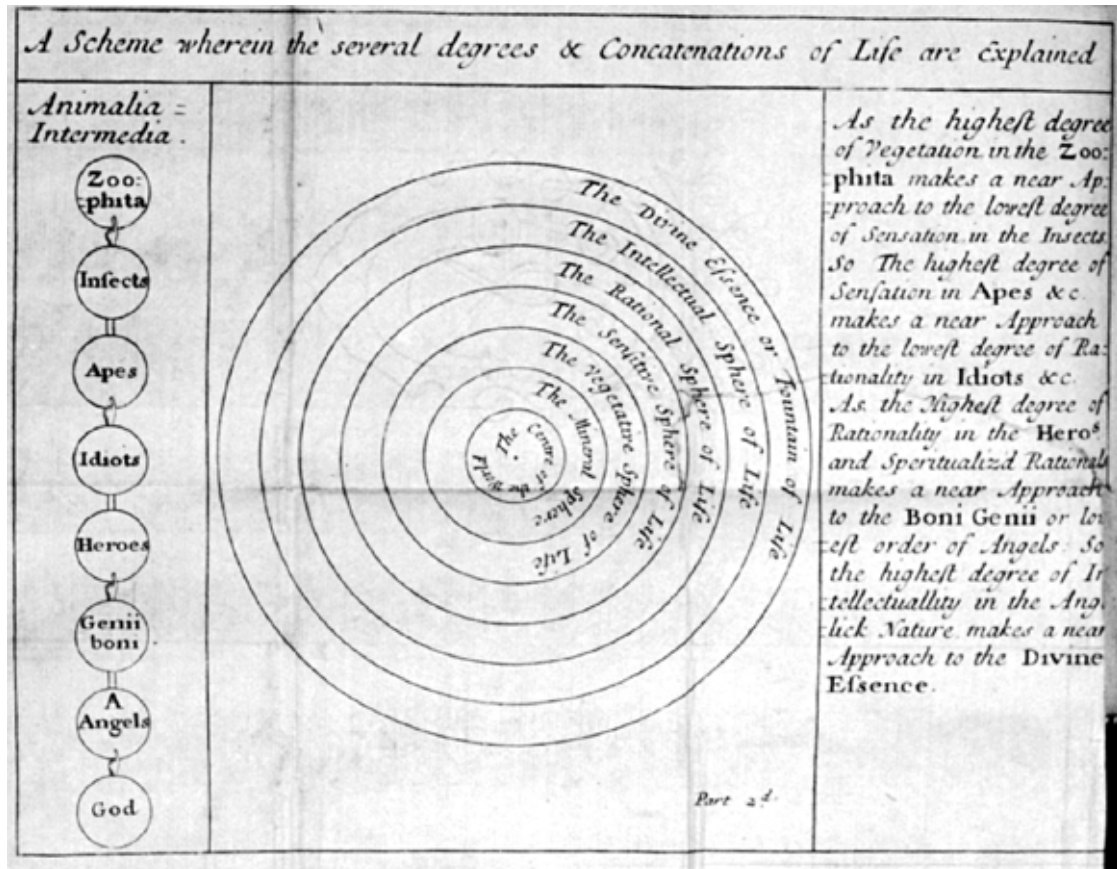 A Scheme wherein the several degrees & Concatenations of Life are Explained
Animalia =
Intermedia.
Zoo:
=phita
Insects
Apes
Idiots
Heroes
Genii
boni
A
Angels
God
The Divine Eſsence or Fountain of Life
The Intellectual Sphere of Life
The Rational Sphere of Life
The Senſitive Sphere of Life
The Vegetative Sphere of Life
The Mineral Sphere
The Centre of
Part 2d.
As the higheſt degree
of Vegetation in the Zoo:
phita makes a near Ap:
proach to the lowest degree
of Sensation in the Insects
So The higheſt degree of
Senſation in Apes &c.
makes a near Approach
to the lowest degree of Ra:
tionality in Idiots &c.
As the Higheſt degree of
Rationality in the Heros
and Speritualizd Rationals
makes a near Approach
to the Boni Genii or low
eſt order of Angels. So
the higheſt degree of In
tellectuallity in the Ange
lick Nature makes a near
Approach to the Divine
Eſsence.